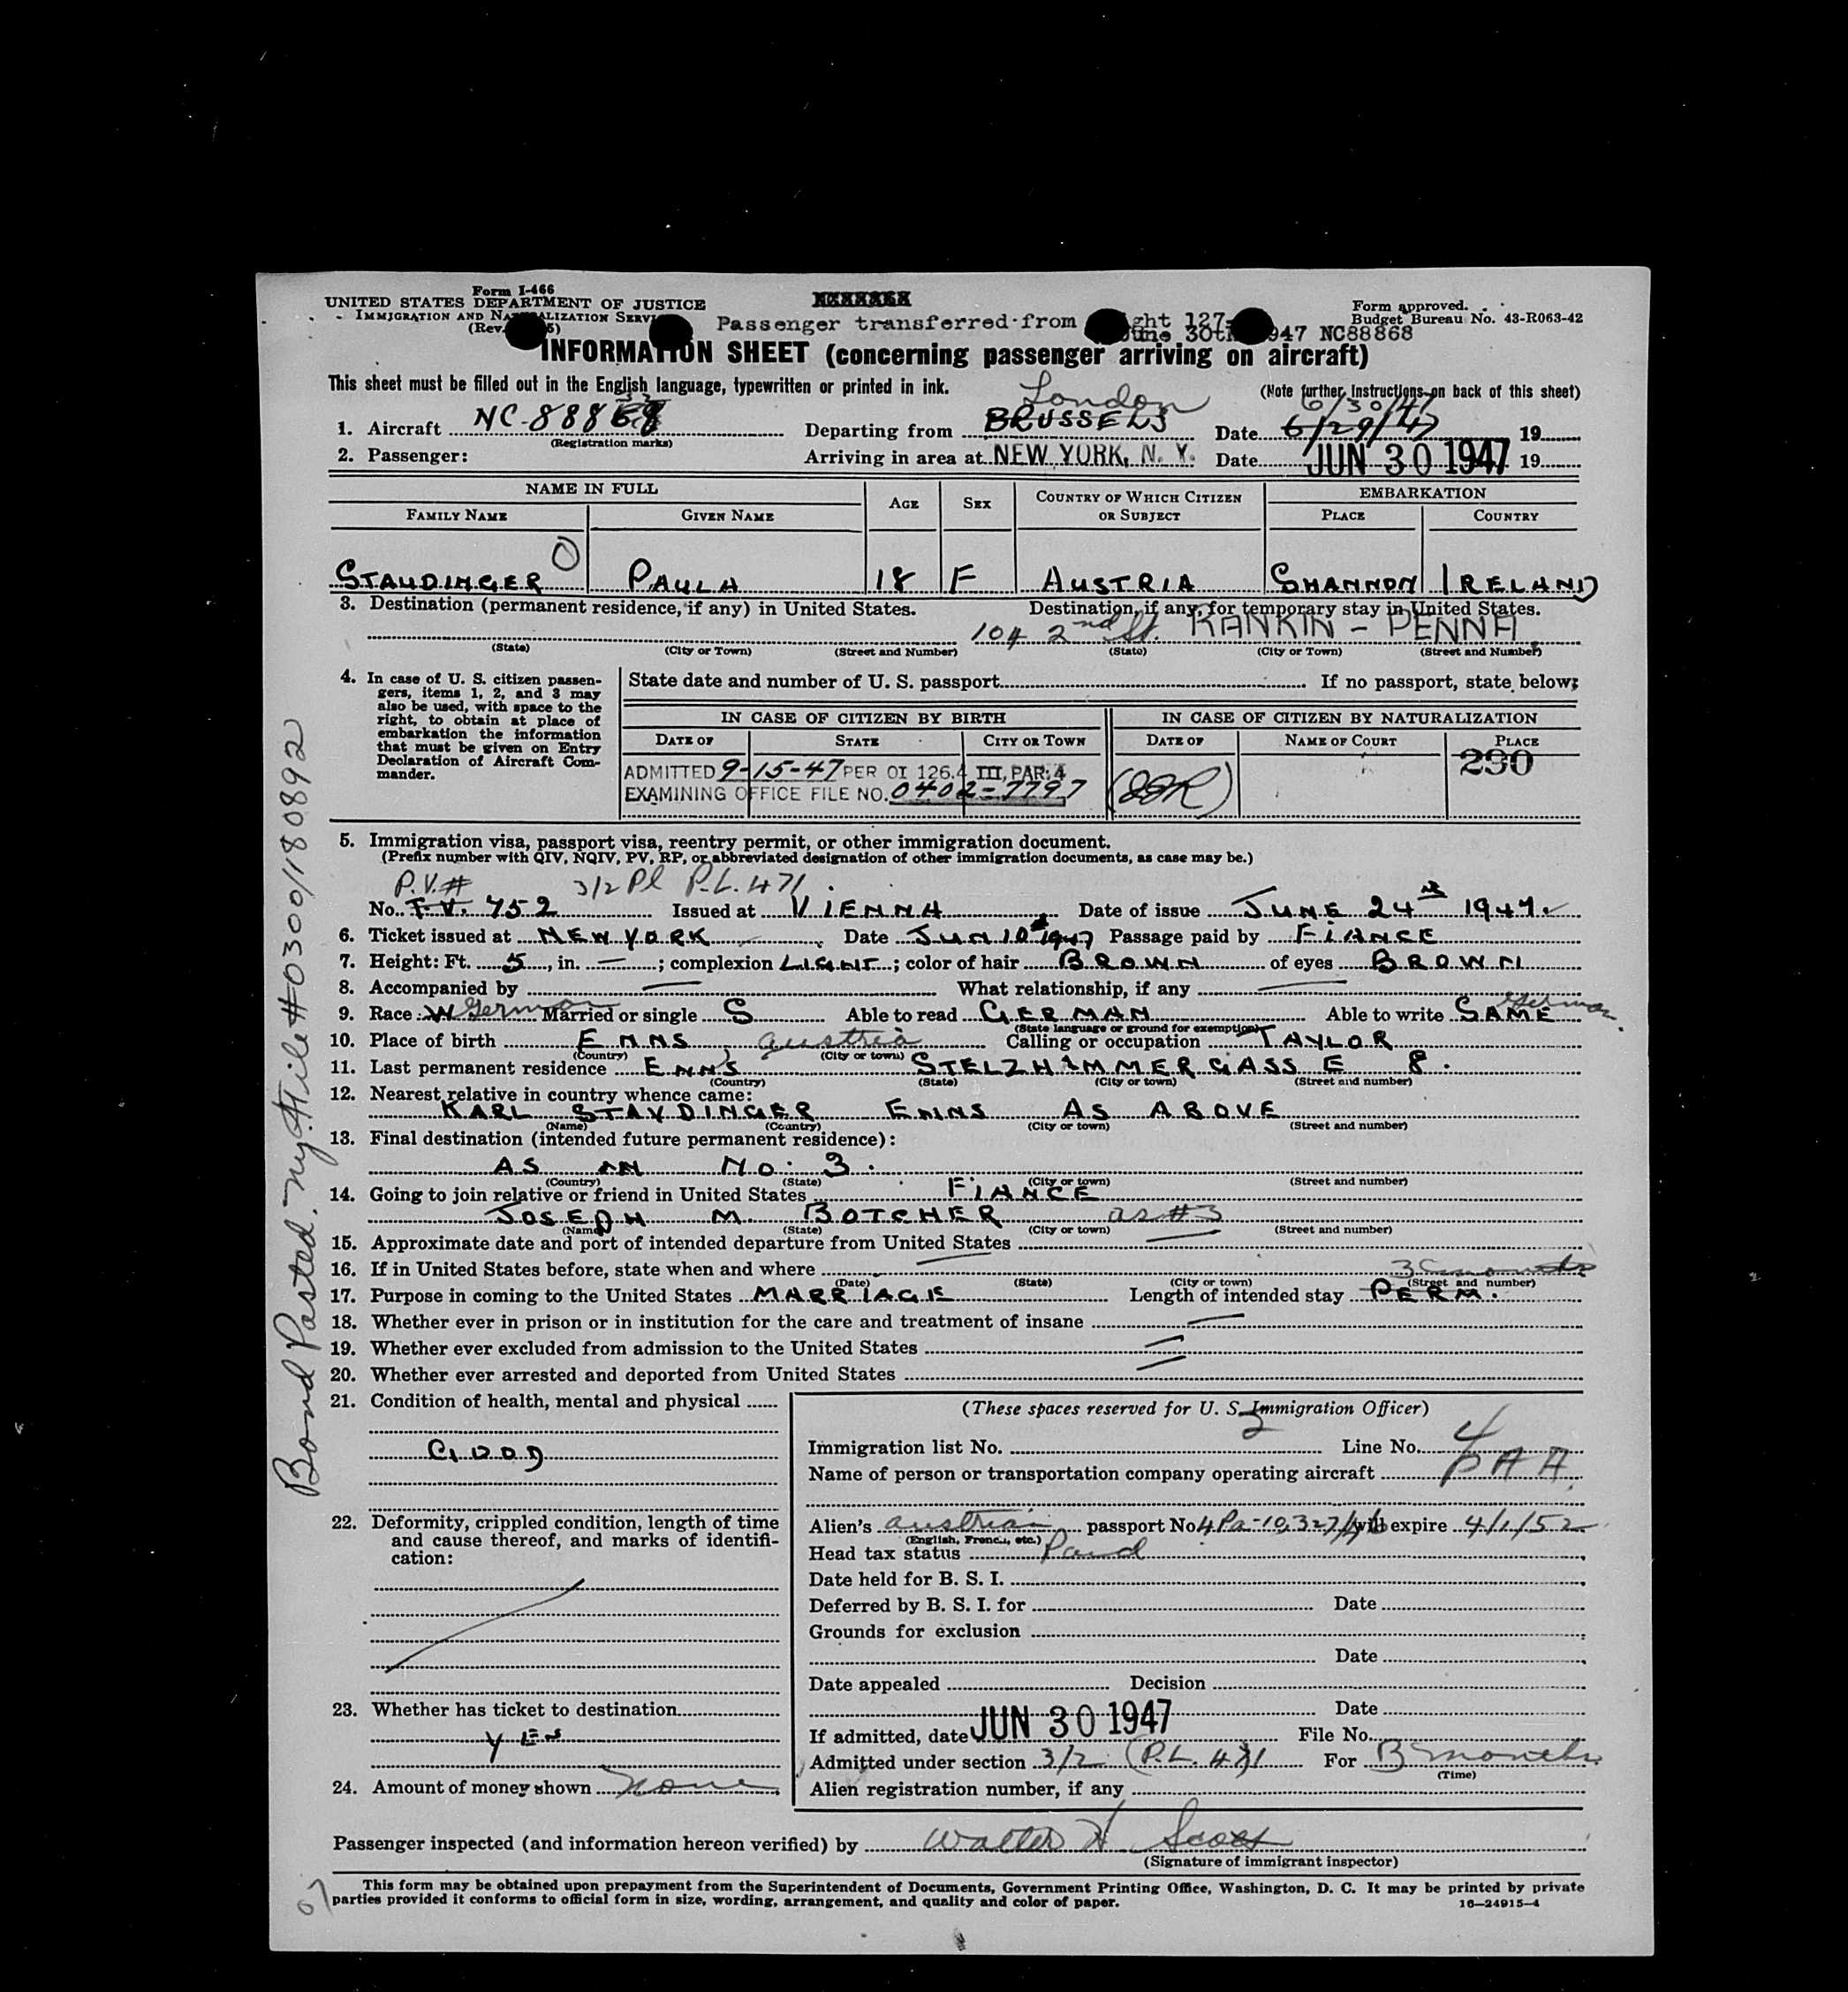 Form I-466
UNITED STATES DEPARTMENT OF JUSTICE
IMMIGRATION AND NATURALIZATION SERVICE
(Rev. 5)
Form approved.
Budget Bureau No. 43-R063-42
Passenger transferred from ght 127
June 30th 1947 NC88868
INFORMATION SHEET (concerning passenger arriving on aircraft)
This sheet must be filled out in the English language, typewritten or printed in ink.
(Note further instructions on back of this sheet)
London
6/30/47
1. Aircraft NC-888 Departing from BRUSSELS Date 6/29/47 19
(Registration marks)
2. Passenger: Arriving in area at NEW YORK, N. Y. Date JUN 30 1947 19
NAME IN FULL AGE SEX COUNTRY OF WHICH CITIZEN OR SUBJECT EMBARKATION
FAMILY NAME GIVEN NAME PLACE COUNTRY
STAUDINGER PAULA 18 F AUSTRIA SHANNON IRELAND
3. Destination (permanent residence, if any) in United States. Destination, if any, for temporary stay in United States.
104 2nd St. RANKIN - PENNA
(State) (City or Town) (Street and Number) (State) (City or Town) (Street and Number)
4. In case of U. S. citizen passengers, items 1, 2, and 3 may also be used, with space to the right, to obtain at place of embarkation the information that must be given on Entry Declaration of Aircraft Commander.
State date and number of U. S. passport If no passport, state below:
IN CASE OF CITIZEN BY BIRTH IN CASE OF CITIZEN BY NATURALIZATION
DATE OF STATE CITY OR TOWN DATE OF NAME OF COURT PLACE
290
ADMITTED 9-15-47 PER OI 126.4 III, PAR. 4
EXAMINING OFFICE FILE NO. 0402-7797
5. Immigration visa, passport visa, reentry permit, or other immigration document.
(Prefix number with QIV, NQIV, PV, RP, or abbreviated designation of other immigration documents, as case may be.)
P.V.# 3/2 Pl P.L. 471
No. T.V. 752 Issued at VIENNA Date of issue JUNE 24th 1947
6. Ticket issued at NEW YORK Date JUN 10 1947 Passage paid by FIANCE
7. Height: Ft. 5, in. — ; complexion LIGHT ; color of hair BROWN of eyes BROWN
8. Accompanied by — What relationship, if any —
9. Race W German Married or single S Able to read GERMAN Able to write SAME German
(State language or ground for exemption)
10. Place of birth ENNS Austria Calling or occupation TAYLOR
(Country) (City or town)
11. Last permanent residence ENNS STELZHAMMERGASSE 8.
(Country) (State) (City or town) (Street and number)
12. Nearest relative in country whence came:
KARL STAYDINGER ENNS AS ABOVE
(Name) (Country) (City or town) (Street and number)
13. Final destination (intended future permanent residence):
AS IN No. 3.
(Country) (State) (City or town) (Street and number)
14. Going to join relative or friend in United States FIANCE
JOSEPH M. BOTCHER as #3
(Name) (State) (City or town) (Street and number)
15. Approximate date and port of intended departure from United States —
16. If in United States before, state when and where —
(Date) (State) (City or town) (Street and number)
3 months
17. Purpose in coming to the United States MARRIAGE Length of intended stay PERM.
18. Whether ever in prison or in institution for the care and treatment of insane —
19. Whether ever excluded from admission to the United States —
20. Whether ever arrested and deported from United States —
21. Condition of health, mental and physical
GOOD
22. Deformity, crippled condition, length of time and cause thereof, and marks of identification:
23. Whether has ticket to destination
YES
24. Amount of money shown none
(These spaces reserved for U. S. Immigration Officer)
Immigration list No. 2 Line No. 4
Name of person or transportation company operating aircraft PAA
Alien's Austrian passport No. 4Pa-10,327/46 will expire 4/1/52
(English, French, etc.)
Head tax status Paid
Date held for B. S. I.
Deferred by B. S. I. for Date
Grounds for exclusion
Date
Date appealed Decision
Date
If admitted, date JUN 30 1947 File No.
Admitted under section 3/2 (P.L. 471 For 3 months
(Time)
Alien registration number, if any
Passenger inspected (and information hereon verified) by Walter H Scott
(Signature of immigrant inspector)
This form may be obtained upon prepayment from the Superintendent of Documents, Government Printing Office, Washington, D. C. It may be printed by private
parties provided it conforms to official form in size, wording, arrangement, and quality and color of paper.
16—24915-4
Bond Posted. NY. File # 0300/180892